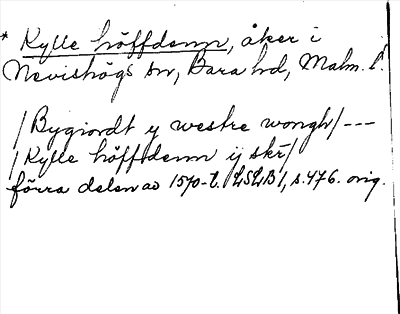 * Kylle höffdenn, åker i
Nevishögs sn, Bara hd, Malm. l.
/Bygiordt y westre wongh/ ---
/Kylle höffdenn ij skr/
förra delen av 1570-t. LSLB 1, s. 476. orig.